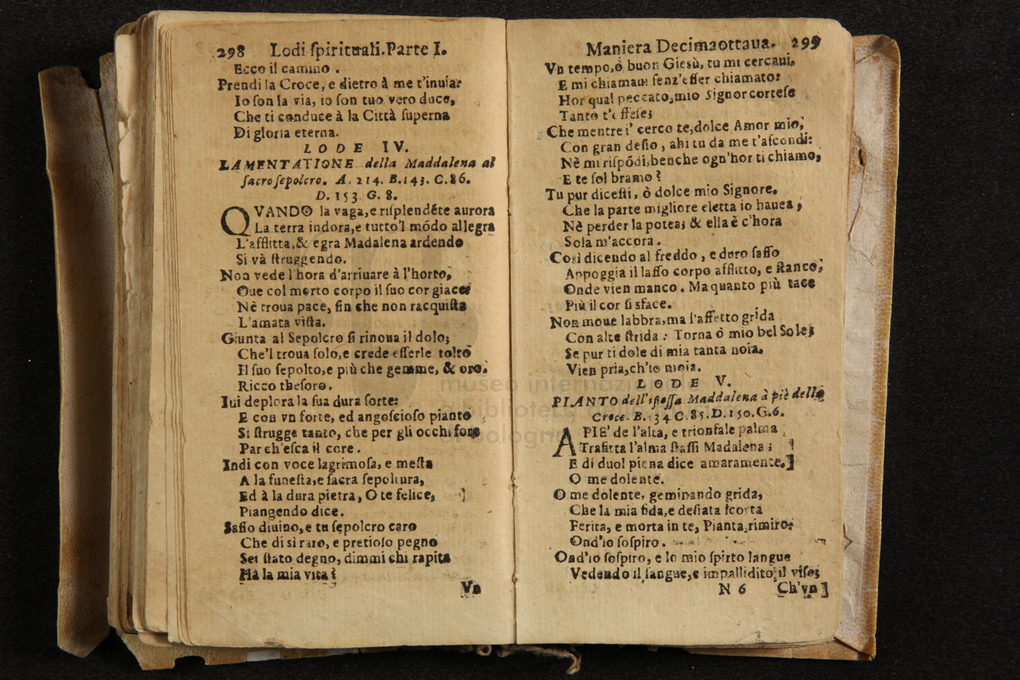 298 Lodi ſpirituali. Parte I.
Ecco il camino .
Prendi la Croce, e dietro à me t'inuia:
Io ſon la via, io ſon tuo vero duce,
Che ti conduce à la Città ſuperna
Di gloria eterna.
LODE IV.
LAMENTATIONE della Maddalena al
ſacro ſepolcro. A. 214. B. 143. C. 86.
D. 153 G. 8.
QVANDO la vaga, e riſplendẽte aurora
La terra indora, e tutto'l mõdo allegra
L'afflitta, & egra Madalena ardendo
Si và ſtruggendo.
Non vede l'hora d'arriuare à l'horto,
Oue col morto corpo il ſuo cor giace:
Nè troua pace, fin che non racquiſta
L'amata viſta.
Giunta al Sepolcro ſi rinoua il dolo;
Che'l troua ſolo, e crede eſſerle tolto
Il ſuo ſepolto, e più che gemme, & oro.
Ricco theſoro.
Iui deplora la ſua dura ſorte:
E con vn forte, ed angoſcioſo pianto
Si ſtrugge tanto, che per gli occhi fore
Par ch'eſca il core.
Indi con voce lagrimoſa, e meſta
A la funeſta, e ſacra ſepoltura,
Ed à la dura pietra, O te felice,
Piangendo dice.
Saſſo diuino, e tu ſepolcro caro
Che di sì raro, e pretioſo pegno
Sei ſtato degno, dimmi chi rapita
Hà la mia vita?
Vn
Maniera Decimaottaua. 299
Vn tempo, ò buon Gieſù, tu mi cercaui,
E mi chiamaui ſenz'eſſer chiamato:
Hor qual peccato, mio Signor corteſe
Tanto t'offeſe;
Che mentre i' cerco te, dolce Amor mio,
Con gran deſio , ahi tu da me t'aſcondi:
Nè mi riſpõdi, benche ogn'hor ti chiamo,
E te ſol bramo?
Tu pur diceſti, ò dolce mio Signore,
Che la parte migliore eletta io hauea ,
Nè perder la potea; & ella è c'hora
Sola m'accora .
Così dicendo al freddo , e duro ſaſſo
Appoggia il laſſo corpo afflitto, e ſtanco,
Onde vien manco . Ma quanto più tace
Più il cor ſi sface.
Non moue labbra, ma l'affetto grida
Con alte ſtrida : Torna ò mio bel Sole;
Se pur ti dole di mia tanta noia,
Vien pria, ch'io moia.
LODE V.
PIANTO dell'iſteſſa Maddalena à piè della
Croce. B. 134 C. 85. D. 150. G. 6.
A PIE' de l'alta, e trionfale palma
Trafitta l'alma ſtaſſi Madalena ;
E di duol piena dice amaramente,
O me dolente.
O me dolente, geminando grida,
Che la mia fida, e deſiata ſcorta
Ferita, e morta in te, Pianta, rimiro:
Ond'io ſoſpiro .
Ond'io ſoſpiro, e lo mio ſpirto langue
Vedendo il ſangue, e impallidito il viſo;
N 6 Ch'vn
museo internazionale
e biblioteca
bologna